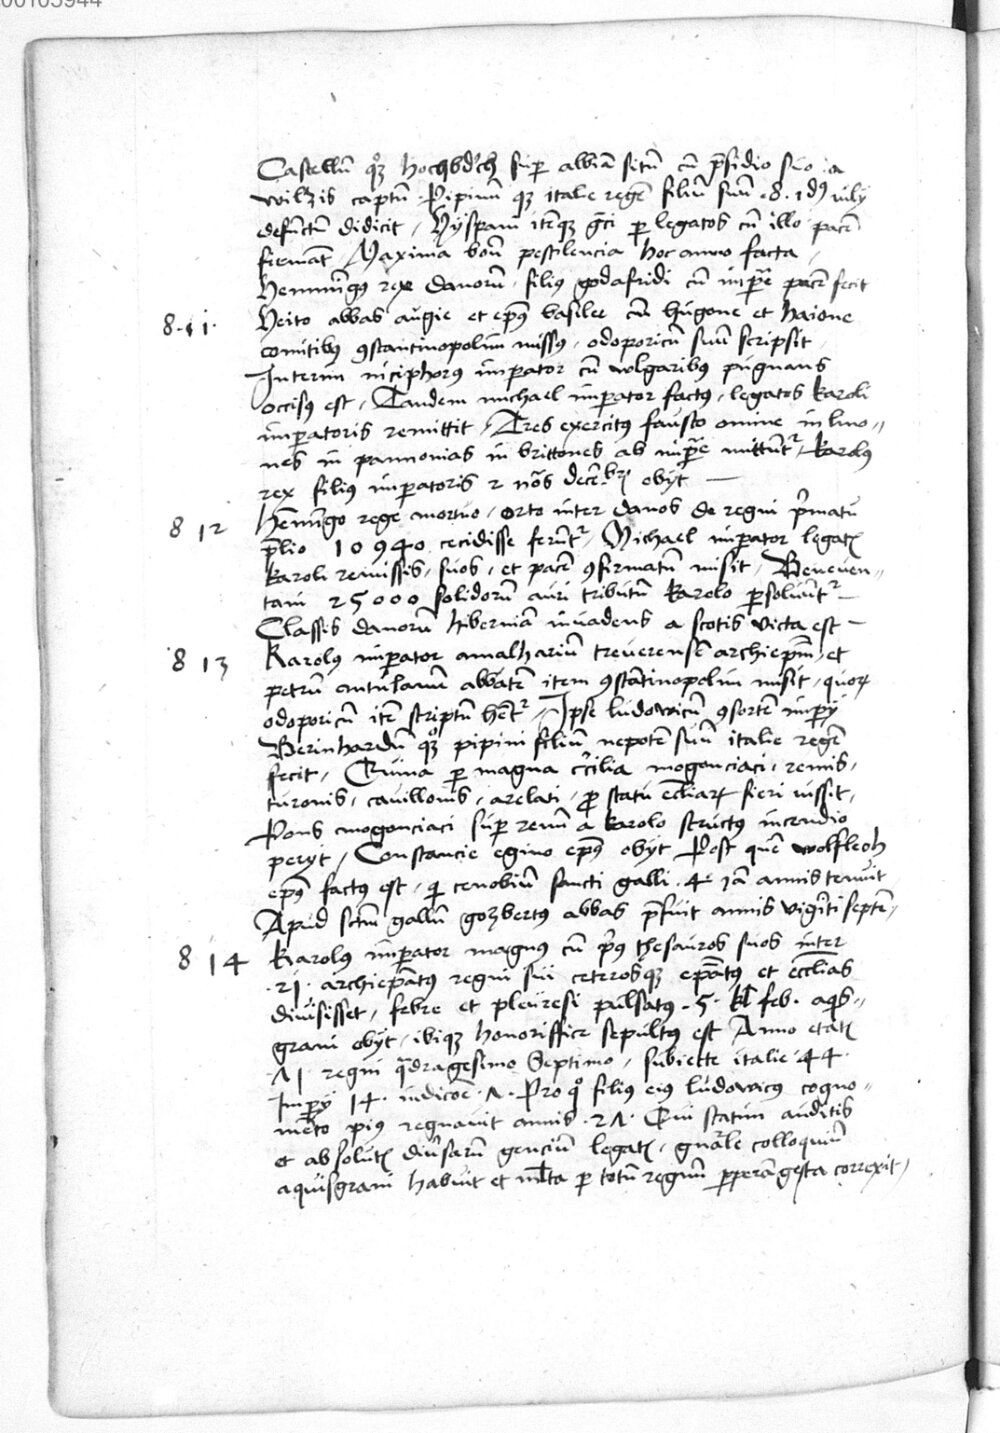 00103944
Castellū qȝ hochbd'ch sup albiā sitū cū p̄sidio suo
wilzis captū Pipinū qȝ italie regē filiū suū .8. idꝰ iuly
defūctū didicit / Hyspani itēqȝ gͣci p legatos cū illo pacē
firmāt / Maxima boū pestilencia hoc anno facta /
Hemmīgꝰ rex danorū filiꝰ godafridi cū impͣe pacē fecit
8.11. Heito abbas augie et epꝰ basilee cū hugone et haione
comitibꝰ ꝯstantinopolim missꝰ, odoporicū suū scripsit,
Interim niciphorꝰ imperator cū wlgaribꝰ pugnans
occisꝰ est / Tandem michael imperator factꝰ, legatos karoli
imperatoris remittit / Tres exercitꝰ fausto omine in lino=
nes in pannonias in brittones ab impͣe mittūtᷣ / karolꝰ
rex filiꝰ imperatoris 2 noͣs decēbꝝ obijt —
8 12 Hēmīgo rege mortuo / orto inter danos de regni pͥmatu
p̄lio 10940 cecidisse ferūtᷣ / Michael imperator legatꝭ
karoli remissis, suos, et pacē ꝯfirmatū misit / Beneven=
tani 25000 solidorū auri tributū karolo psoluūtᷣ —
Classis danorū hiberniā inuadens a scotis victa est —
8 13 Karolꝰ imperator amalhariū treuerensē archiepm̄, et
petrū nntulanū abbatē item ꝯstātinopolim misit, quoꝝ
odoporicū itē scriptū hētᷣ / Ipse ludowicū ꝯsortē impij
Berinhardū qȝ pipini filiū nepotē suū italie regē
fecit / Quina p magna cͨcilia mogonciaci, remis,
turonis, cauillonis, arelati, ꝓ statu eccliaꝝ fieri iussit,
Pons mogonciaci sup renū a karolo structꝰ incendio
perijt / Constancie egino epꝰ obijt Post quē wolfleoh
epꝰ factꝰ est, qͥ cenobiū sancti galli 4 iā annis tenuit
Apud sctm̄ gallū gozbertꝰ abbas p̄fuit annis vigīti septē /
8 14 Karolꝰ imperator magnꝰ cū pͥꝰ thesauros suos inter
.21. archiepātꝰ regni sui ceterosqȝ epātꝰ et eccl̄ias
diuisisset, febre et pleuresi pulsatꝰ .5. kl̄ feb. aqͥs=
grani obijt, ibiqȝ honoriffice sepultꝰ est Anno etatꝭ
.Λ1. regni qͣdragesimo Septimo, subiecte italie 44.
Impij 14. indicoē .Λ. Pro qͦ filiꝰ eiꝰ ludowicꝰ cogno=
mēto piꝰ regnauit annis .2Λ. Qui statim auditis
et absolutꝭ diu̾sarū genciū legatꝭ, gn̄ale colloquiū
aquisgrani habuit et ml̄ta p totū regnū pperā gesta correxit /